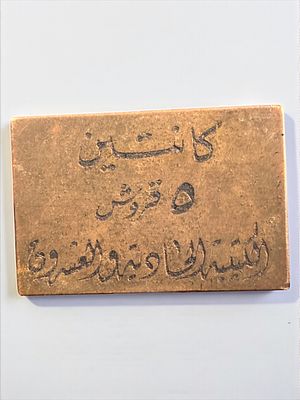 كانتين
٥ قروش
الكتيبة الحادية والعشرون